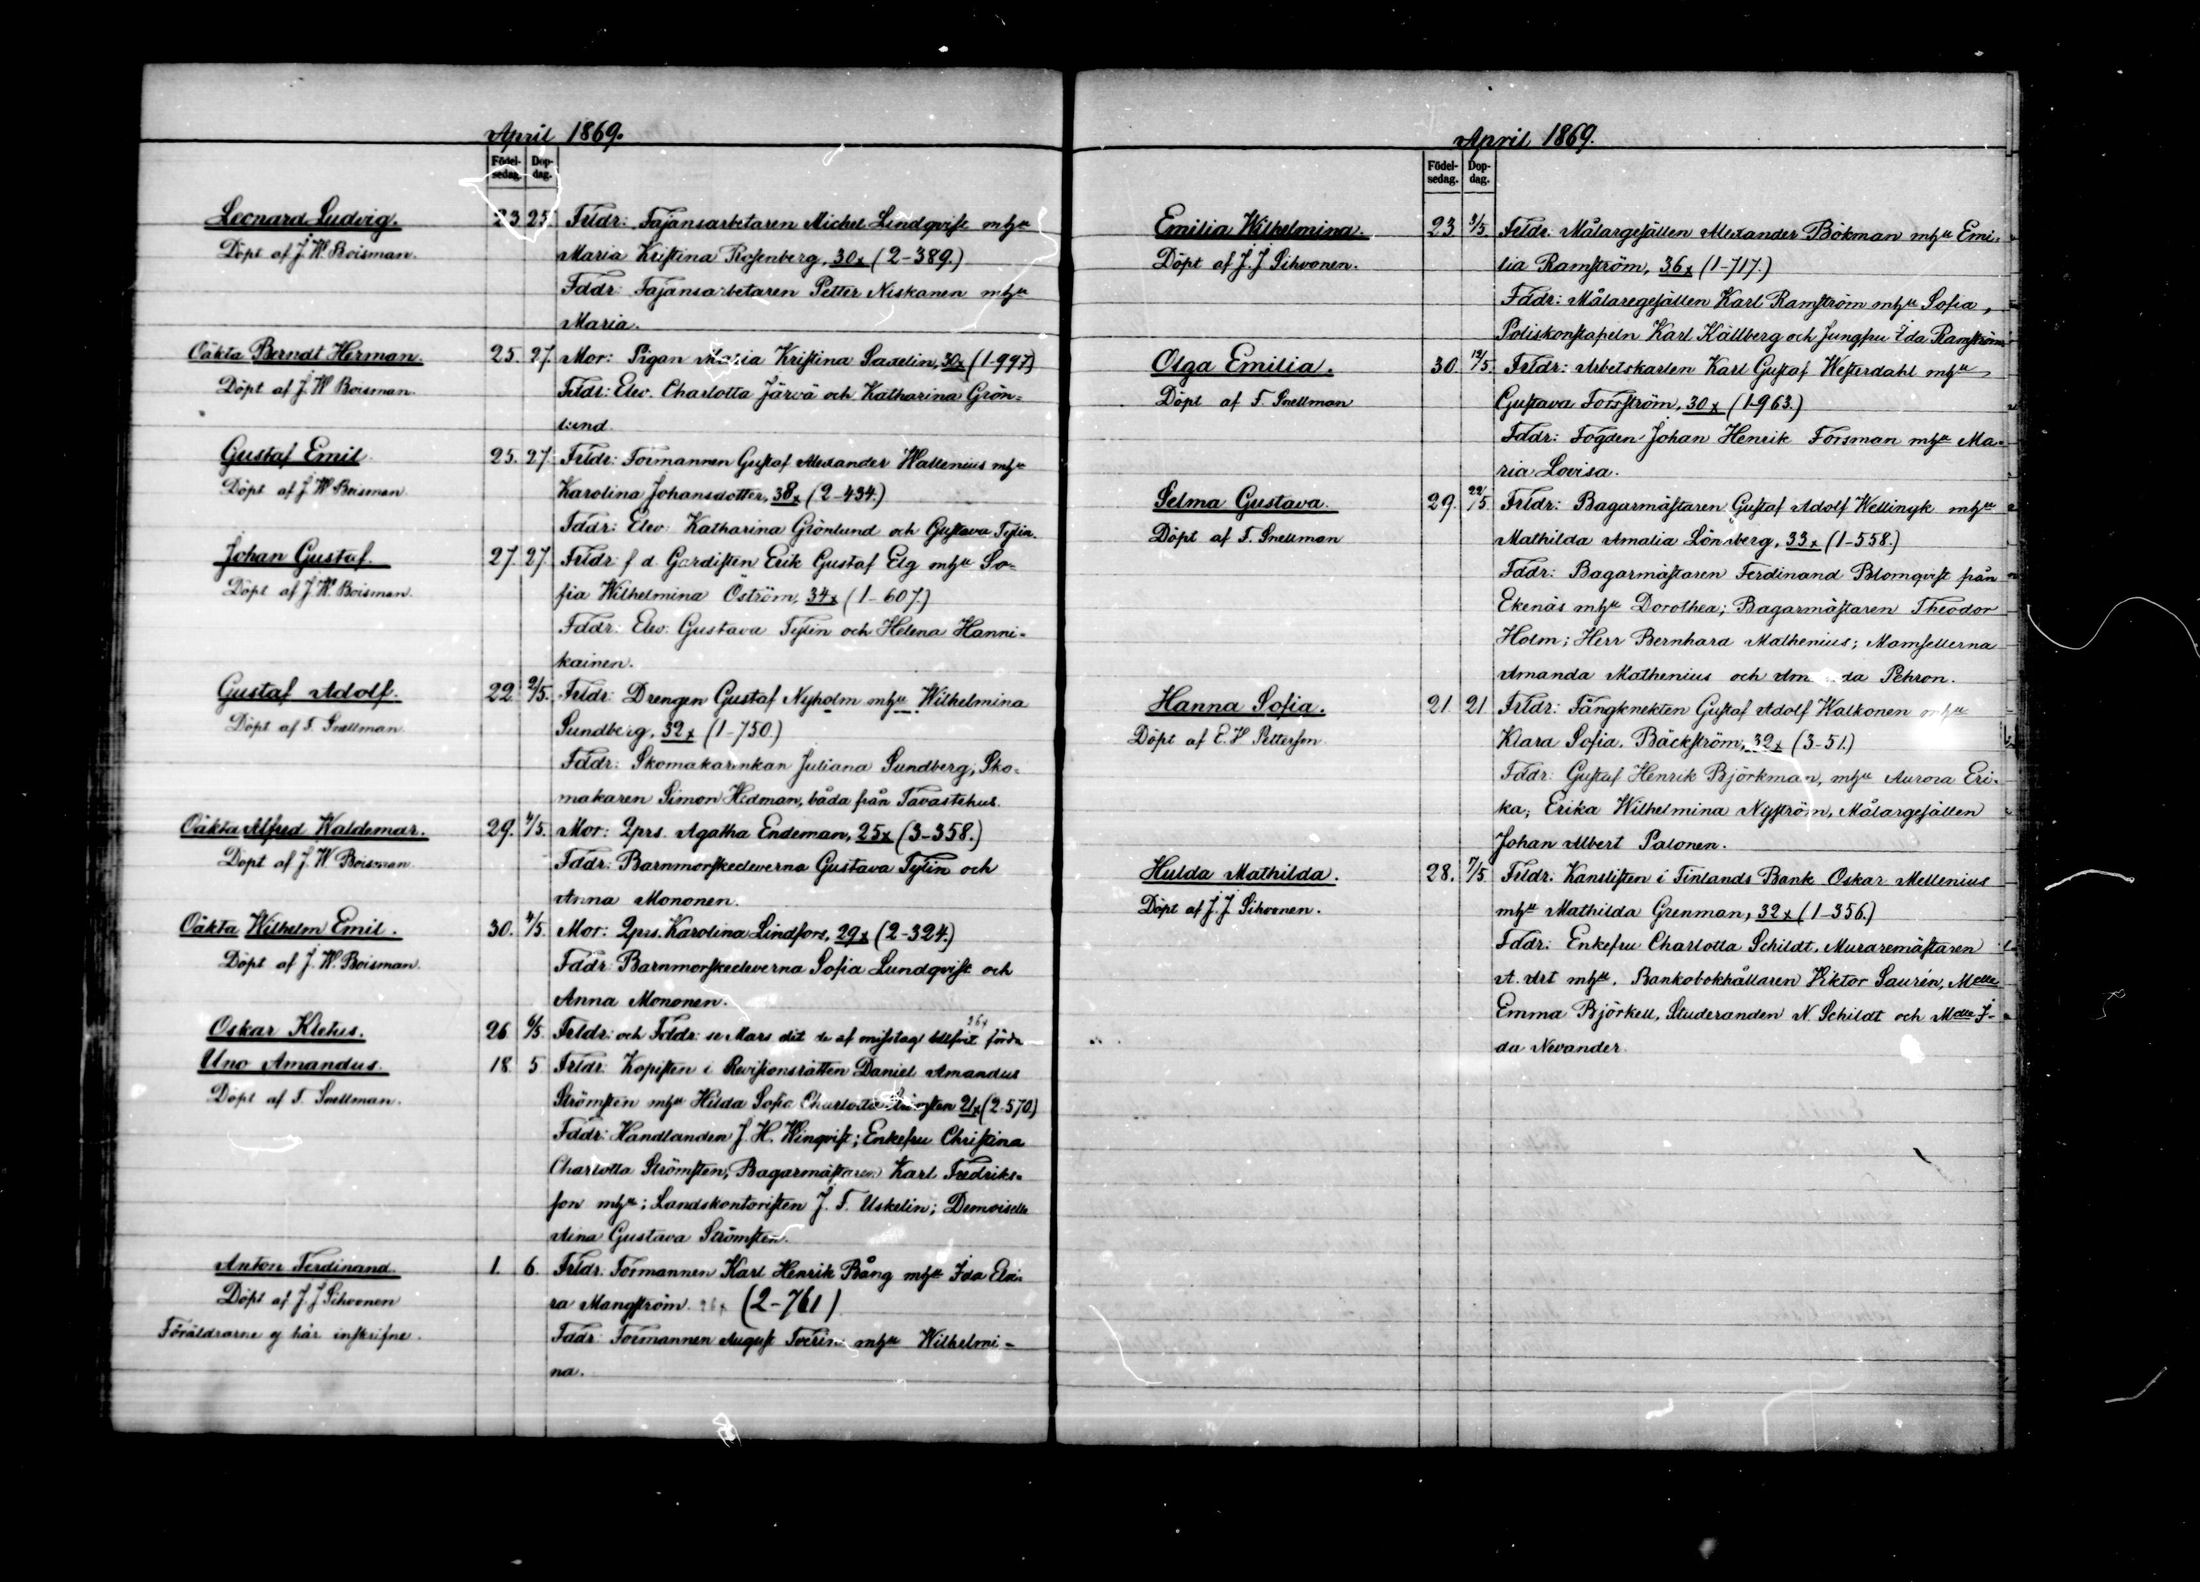 April 1869.
Födel-
sedag.
Dop-
dag.
Leonard Ludvig. 23 25. Frldr: Fajansarbetaren Michel Lindqvist mhu
Döpt af J. W. Boisman. Maria Kristina Rosenberg, 30x (2-389.)
Fddr: Fajansarbetaren Petter Niskanen mhu
Maria.
Oäkta Berndt Herman. 25. 27. Mor: Pigan Maria Kristina Saxelin, 30x (1-997)
Döpt af J. W. Boisman. Elev. Charlotta Järvä och Katharina Grön-
lund.
Gustaf Emil 25. 27. Frldr: Formannen Gustaf Alexander Wallenius mhu
Döpt af J. W. Boisman. Karolina Johansdotter, 38x (2-434.)
Fddr: Elev. Katharina Grönlund och Gustava Tylin.
Johan Gustaf. 27. 27. Frldr: f d. Gardisten Erik Gustaf Elg mhu So-
Döpt af J. W. Boisman. fia Wilhelmina Öström, 34x (1-607.)
Fddr: Elev: Gustava Tylin och Helena Hanni-
kainen.
Gustaf Adolf. 22. 2/5. Frldr: Drengen Gustaf Nyholm mhu Wilhelmina
Döpt af F. Snellman. Sundberg, 32x (1-750.)
Fddr: Skomakarinkan Juliana Sundberg, Sko-
makaren Simon Hedman, båda från Tavastehus.
Oäkta Alfred Waldemar. 29. 4/5. Mor: Qprs. Agatha Endeman, 25x (3-358.)
Döpt af J. W. Boisman Fddr: Barnmorskeeleverna Gustava Tylin och
Anna Mononen.
Oäkta Wilhelm Emil. 30. 4/5. Mor: Qprs. Karolina Lindfors, 29x (2-324.)
Döpt af J. W. Boisman. Fddr: Barnmorskeeleverna Sofia Lundqvist och
Anna Mononen.
Oskar Kletus. 26 6/5. Frldr: och Fddr: se Mars dit de af misstag blifvit förda
Uno Amandus. 18 5 Frldr: Kopisten i Revisionsrätten Daniel Amandus
Döpt af F. Snellman. Strömsten mhu Hilda Sofia Charlotta Strömsten 21x (2-570.)
Fddr: Handlanden J. H. Winqvist; Enkefru Christina
Charlotta Strömsten, Bagarmästaren Karl Fredriks-
son mhu; Landskontoristen J. F. Uskelin; Demoiselle
Aina Gustava Strömsten.
Anton Ferdinand. 1. 6. Frldr: Formannen Karl Henrik Bång mhu Ida Elvi-
Döpt af J. J Sihvonen ra Mangström. 26x (2-761)
Föräldrarne ej här inskrifne. Fddr: Formannen August Tverin mhu Wilhelmi-
na.
April 1869.
Födel-
sedag.
Dop-
dag.
Emilia Wilhelmina. 23 3/5. Frldr: Målargesällen Alexander Bökman mhu Emi-
Döpt af J. J Sihvonen. lia Ramström, 36x (1-717.)
Fddr: Målaregesällen Karl Ramström mhu Sofia,
Poliskonstapeln Karl Källberg och Jungfru Ida Ramström
Olga Emilia. 30. 12/5. Frldr: Arbetskarlen Karl Gustaf Westerdahl mhu
Döpt af F. Snellman Gustava Forsström, 30x (1-963.)
Fddr: Fogden Johan Henrik Forsman mhu Ma-
ria Lovisa.
Selma Gustava. 29. 22/5 Frldr: Bagarmästaren Gustaf Adolf Wellingk mhu
Döpt af F. Snellman Mathilda Amalia Lönnberg, 33x (1-558.)
Fddr: Bagarmästaren Ferdinand Blomqvist från
Ekenäs mhu Dorothea; Bagarmästaren Theodor
Holm; Herr Bernhard Malhenius; Mamsellerna
Amanda Mathenius och Pehron.
Hanna Sofia. 21 21 Frldr: Fångknekten Gustaf Adolf Walkonen mhu
Döpt af E. H Pettersson Klara Sofia. Bäckström, 32x (3-51.)
Fddr: Gustaf Henrik Björkman, mhu Aurora Eri-
ka, Erika Wilhelmina Nyström, Målargesällen
Johan Albert Palonen.
Hulda Mathilda. 28. 7/5. Frldr: Kanslisten i Finlands Bank Oskar Mellenius
Döpt af J. J Sihvonen. mhu Mathilda Grenman, 32x (1-356.)
Fddr: Enkefru Charlotta Schildt, Muraremästaren
A. Art mhu, Bankobokhållaren Viktor Saurén, Melle
Emma Björkell, Studeranden N. Schildt och Melle I-
da Nevander.